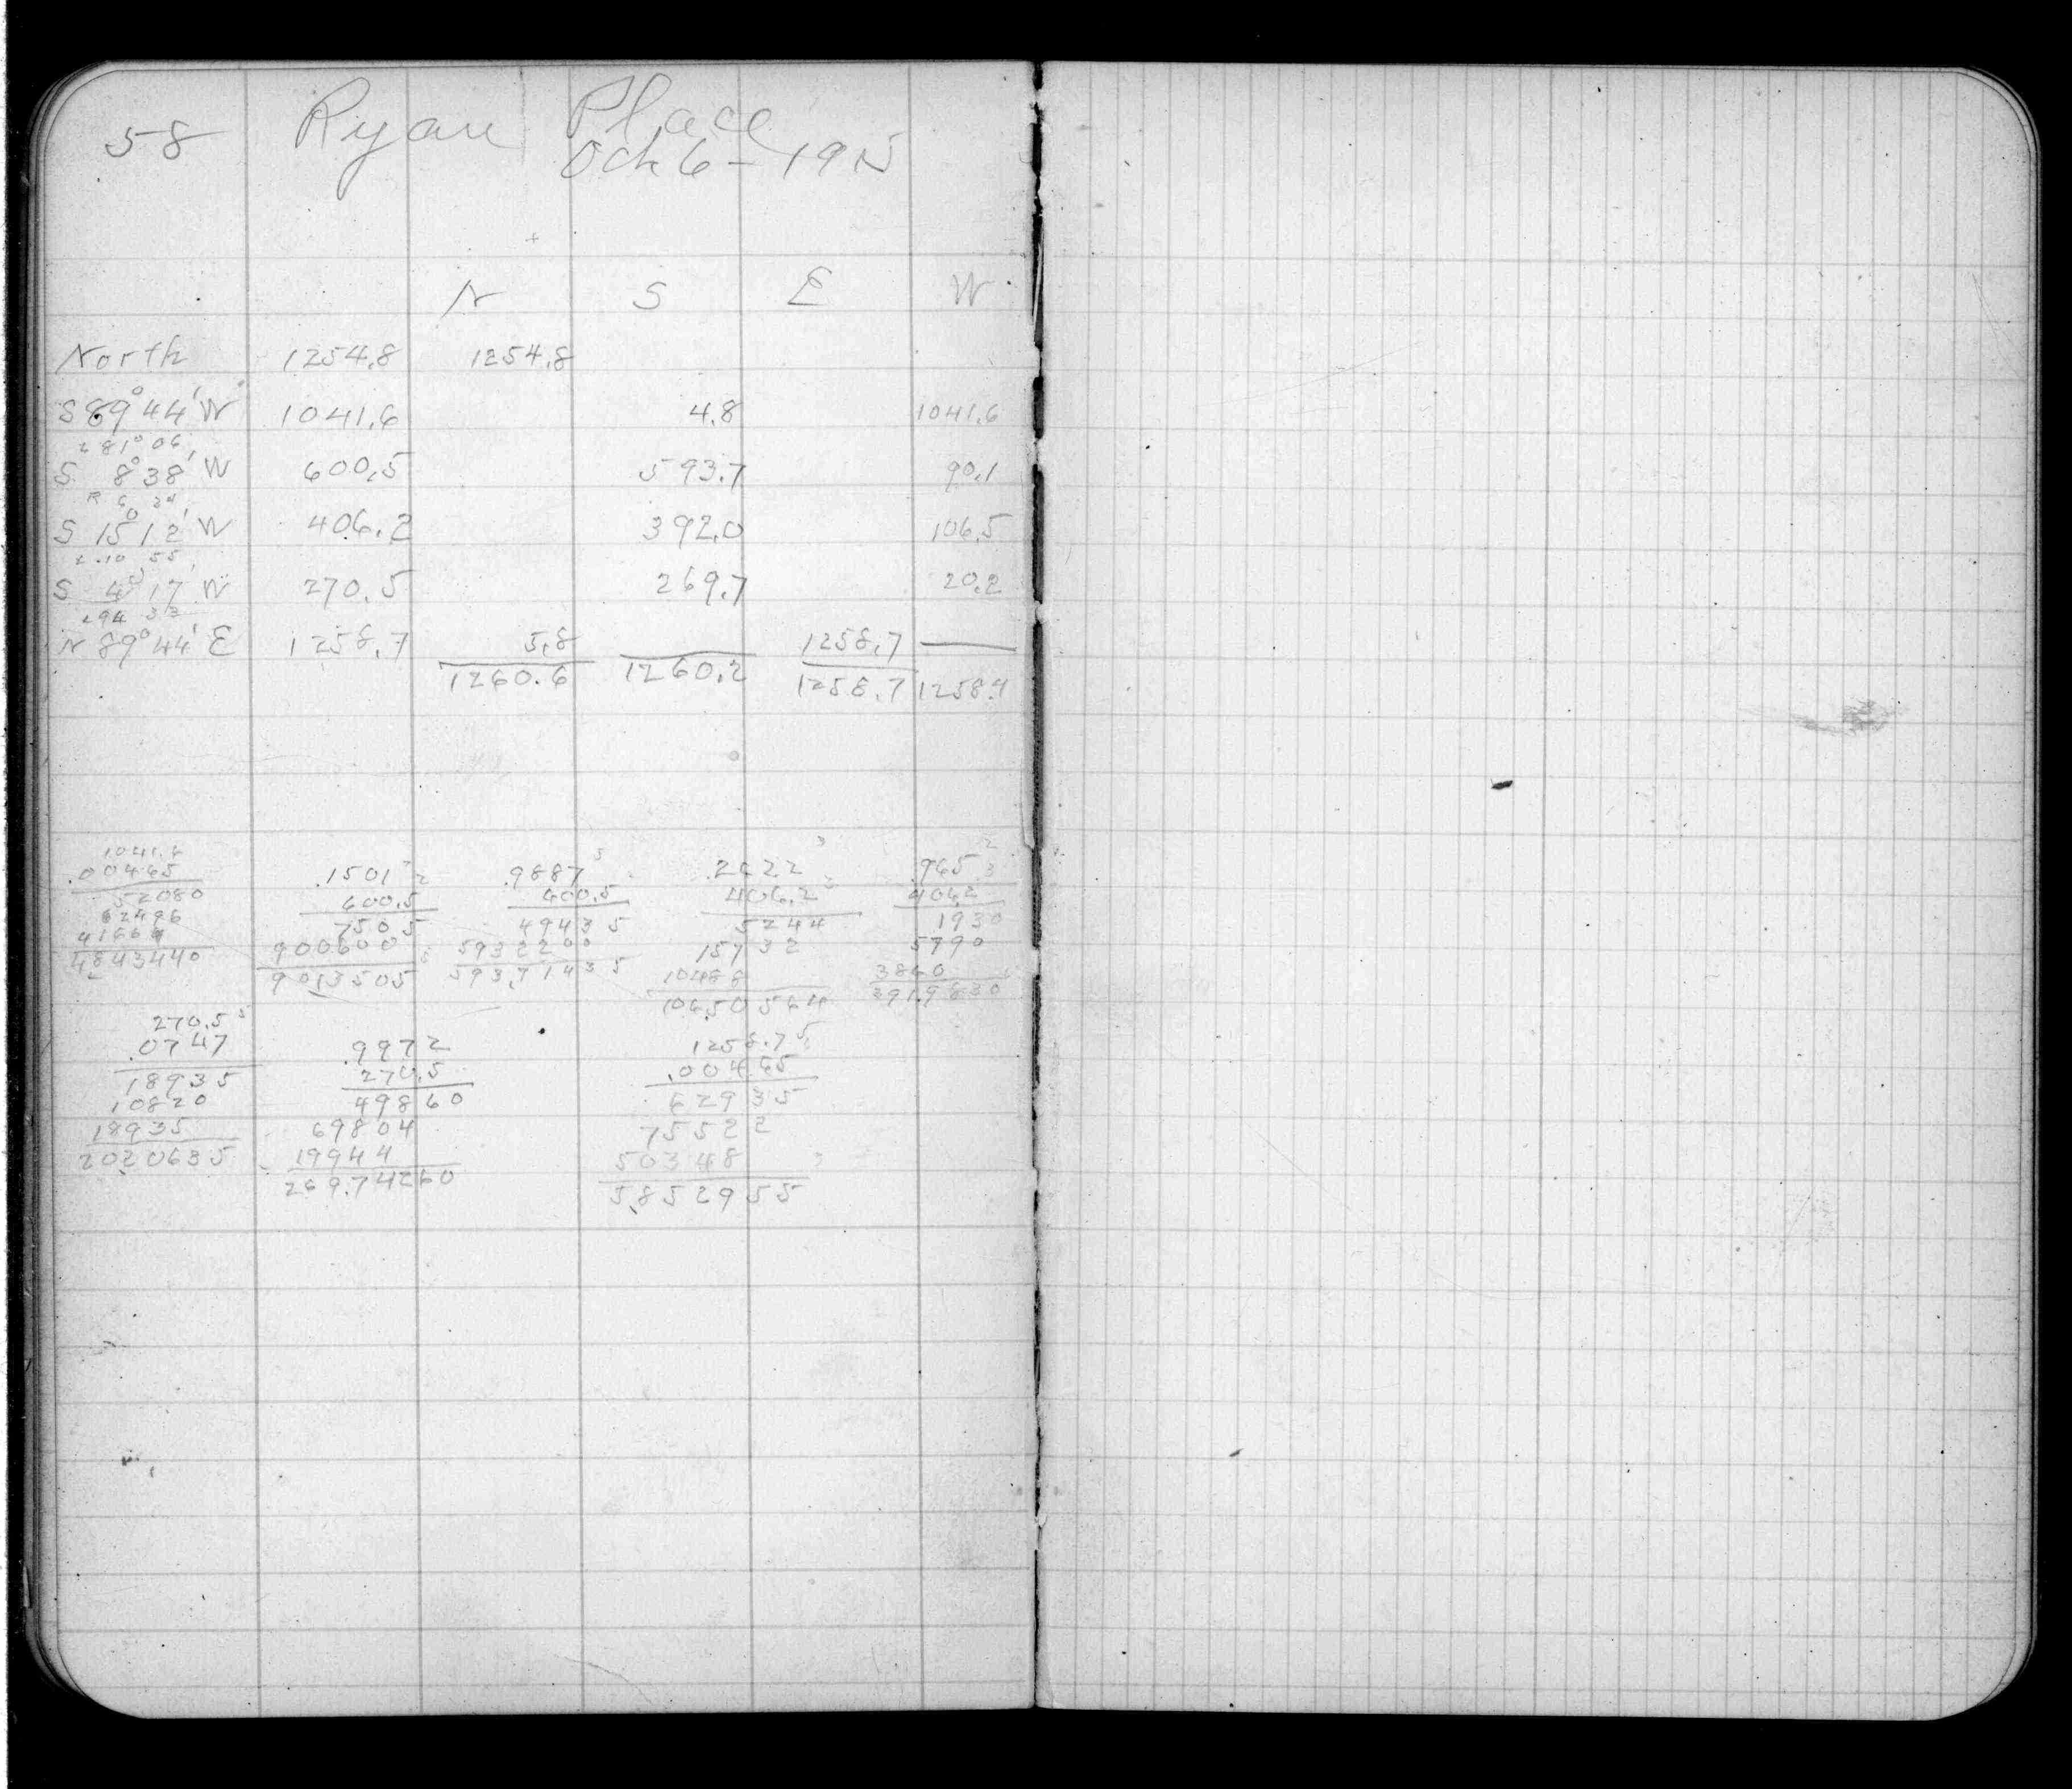 58 Ryan Place
Oct 6 - 1915
N S E W
North 1254.8 1254.8
S 89° 44' W 1041.6 4.8 1041.6
281° 06'
S 8° 38' W 600.5 593.7 90.1
R 6 34'
S 15° 12' W 406.2 392.0 106.5
10 55'
S 4° 17' W 270.5 269.7 20.2
94 33
N 89° 44' E 1258.7 5.8 1258.7
1260.6 1260.2 1258.7 1258.4
1041.6
.00465 .1501 .9887 .2622 .965
52080 600.5 600.5 406.2 406.2
62496 7505 49435 5244 1930
41664 900600 5932200 15732 5790
4843440 9013505 593.71435 10488 3860
10650564 3919830
270.5
.0747 .9972 1258.7
18935 270.5 .00465
10820 49860 62935
18935 69804 75522
2020635 19944 50348
269.74260 5.852955